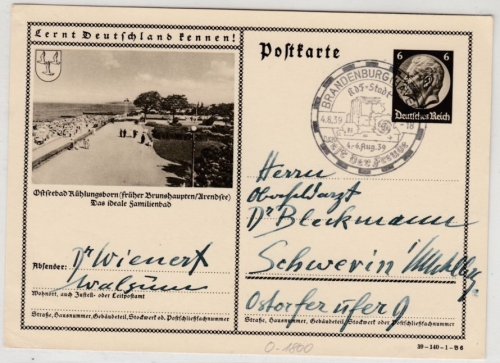 Lernt Deutschland kennen!
Ostseebad Kühlungsborn (früher Brunshaupten/Arendsee)
Das ideale Familienbad
Dr Wienert
Absender:
Wohnort, auch Zustell- oder Leitpostamt
Straße, Hausnummer, Gebäudeteil, Stockwerk od. Postschließfachnummer
Postkarte
6 6
Deutsches Reich
BRANDENBURG
KdF-Stadt
4.8.39 -18
4.-6. Aug. 39
Herrn
Dr Bleckmann
Schwerin i/Mecklbg.
Ostorfer ufer 9
Straße, Hausnummer, Gebäudeteil, Stockwerk oder Postschließfachnummer
39-140-1-B6
0-1800